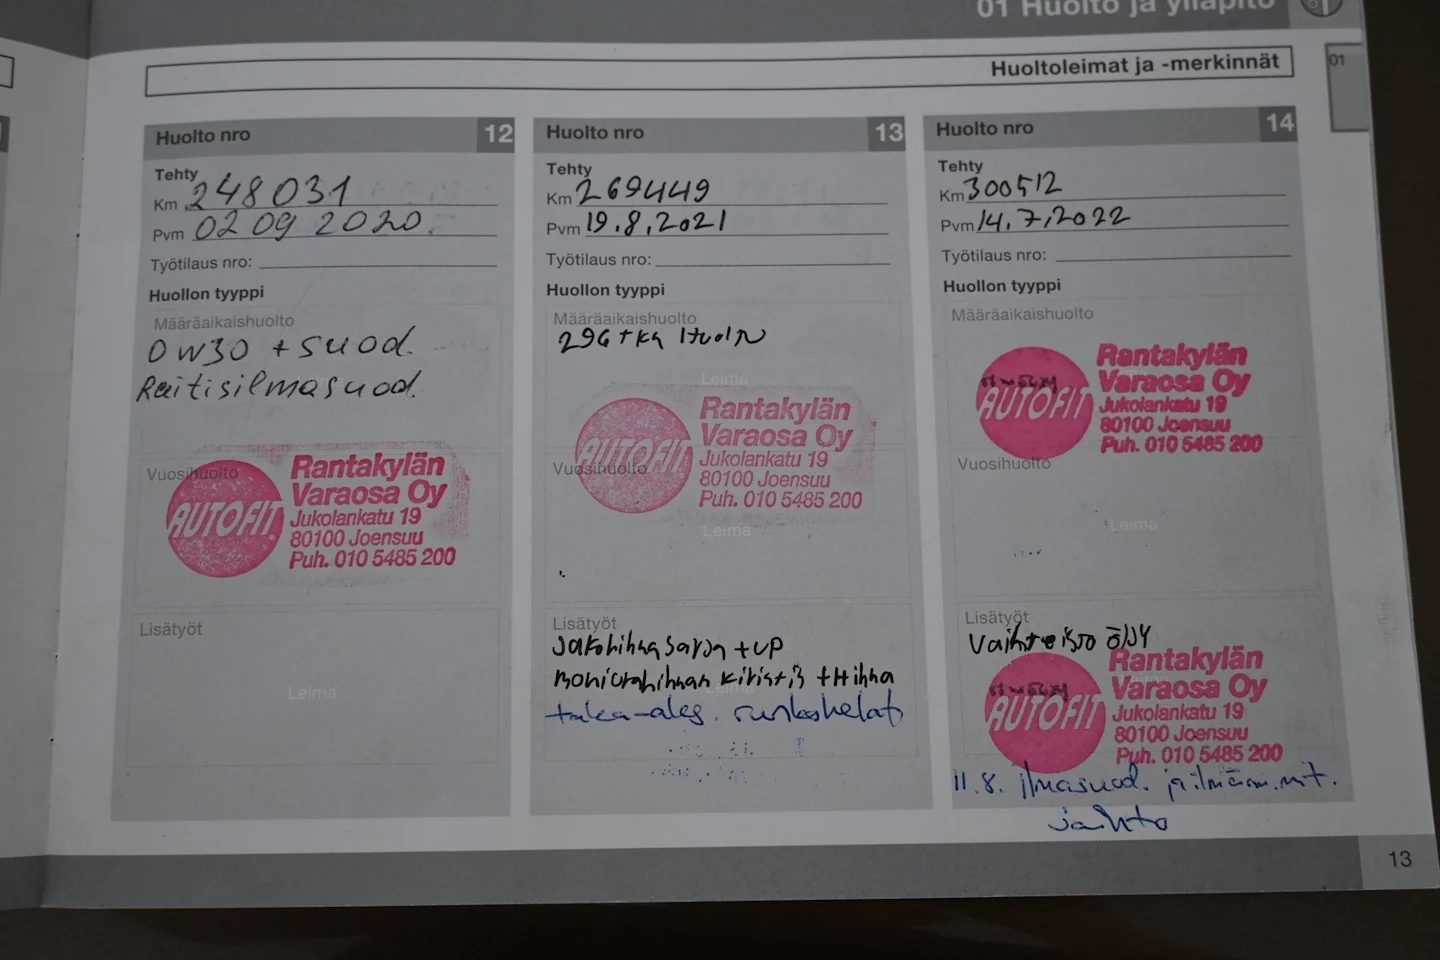 01 Huolto ja ylläpito
Huoltoleimat ja -merkinnät
01
Huolto nro 12
Tehty
Km 248031
Pvm 02 09 2020.
Työtilaus nro:
Huollon tyyppi
Määräaikaishuolto
0W30 + suod.
Raitisilmasuod.
Vuosihuolto
AUTOFIT
Rantakylän
Varaosa Oy
Jukolankatu 19
80100 Joensuu
Puh. 010 5485 200
Lisätyöt
Leima
Huolto nro 13
Tehty
Km 269449
Pvm 19.8.2021
Työtilaus nro:
Huollon tyyppi
Määräaikaishuolto
Leima
AUTOFIT
Rantakylän
Varaosa Oy
Jukolankatu 19
80100 Joensuu
Puh. 010 5485 200
Vuosihuolto
Leima
Lisätyöt
Jakohihnasarja + VP
moniurahihnan kiristin + Hihna
Leima
taka-ales. runkohelat
Huolto nro 14
Tehty
Km 300512
Pvm 14.7.2022
Työtilaus nro:
Huollon tyyppi
Määräaikaishuolto
AUTOFIT
Rantakylän
Varaosa Oy
Jukolankatu 19
80100 Joensuu
Puh. 010 5485 200
Vuosihuolto
Leima
Lisätyöt
Vaihteisto öljy
AUTOFIT
Rantakylän
Varaosa Oy
Jukolankatu 19
80100 Joensuu
Puh. 010 5485 200
11.8. ilmasuod. ja ilmam.mit.
vaihto
13